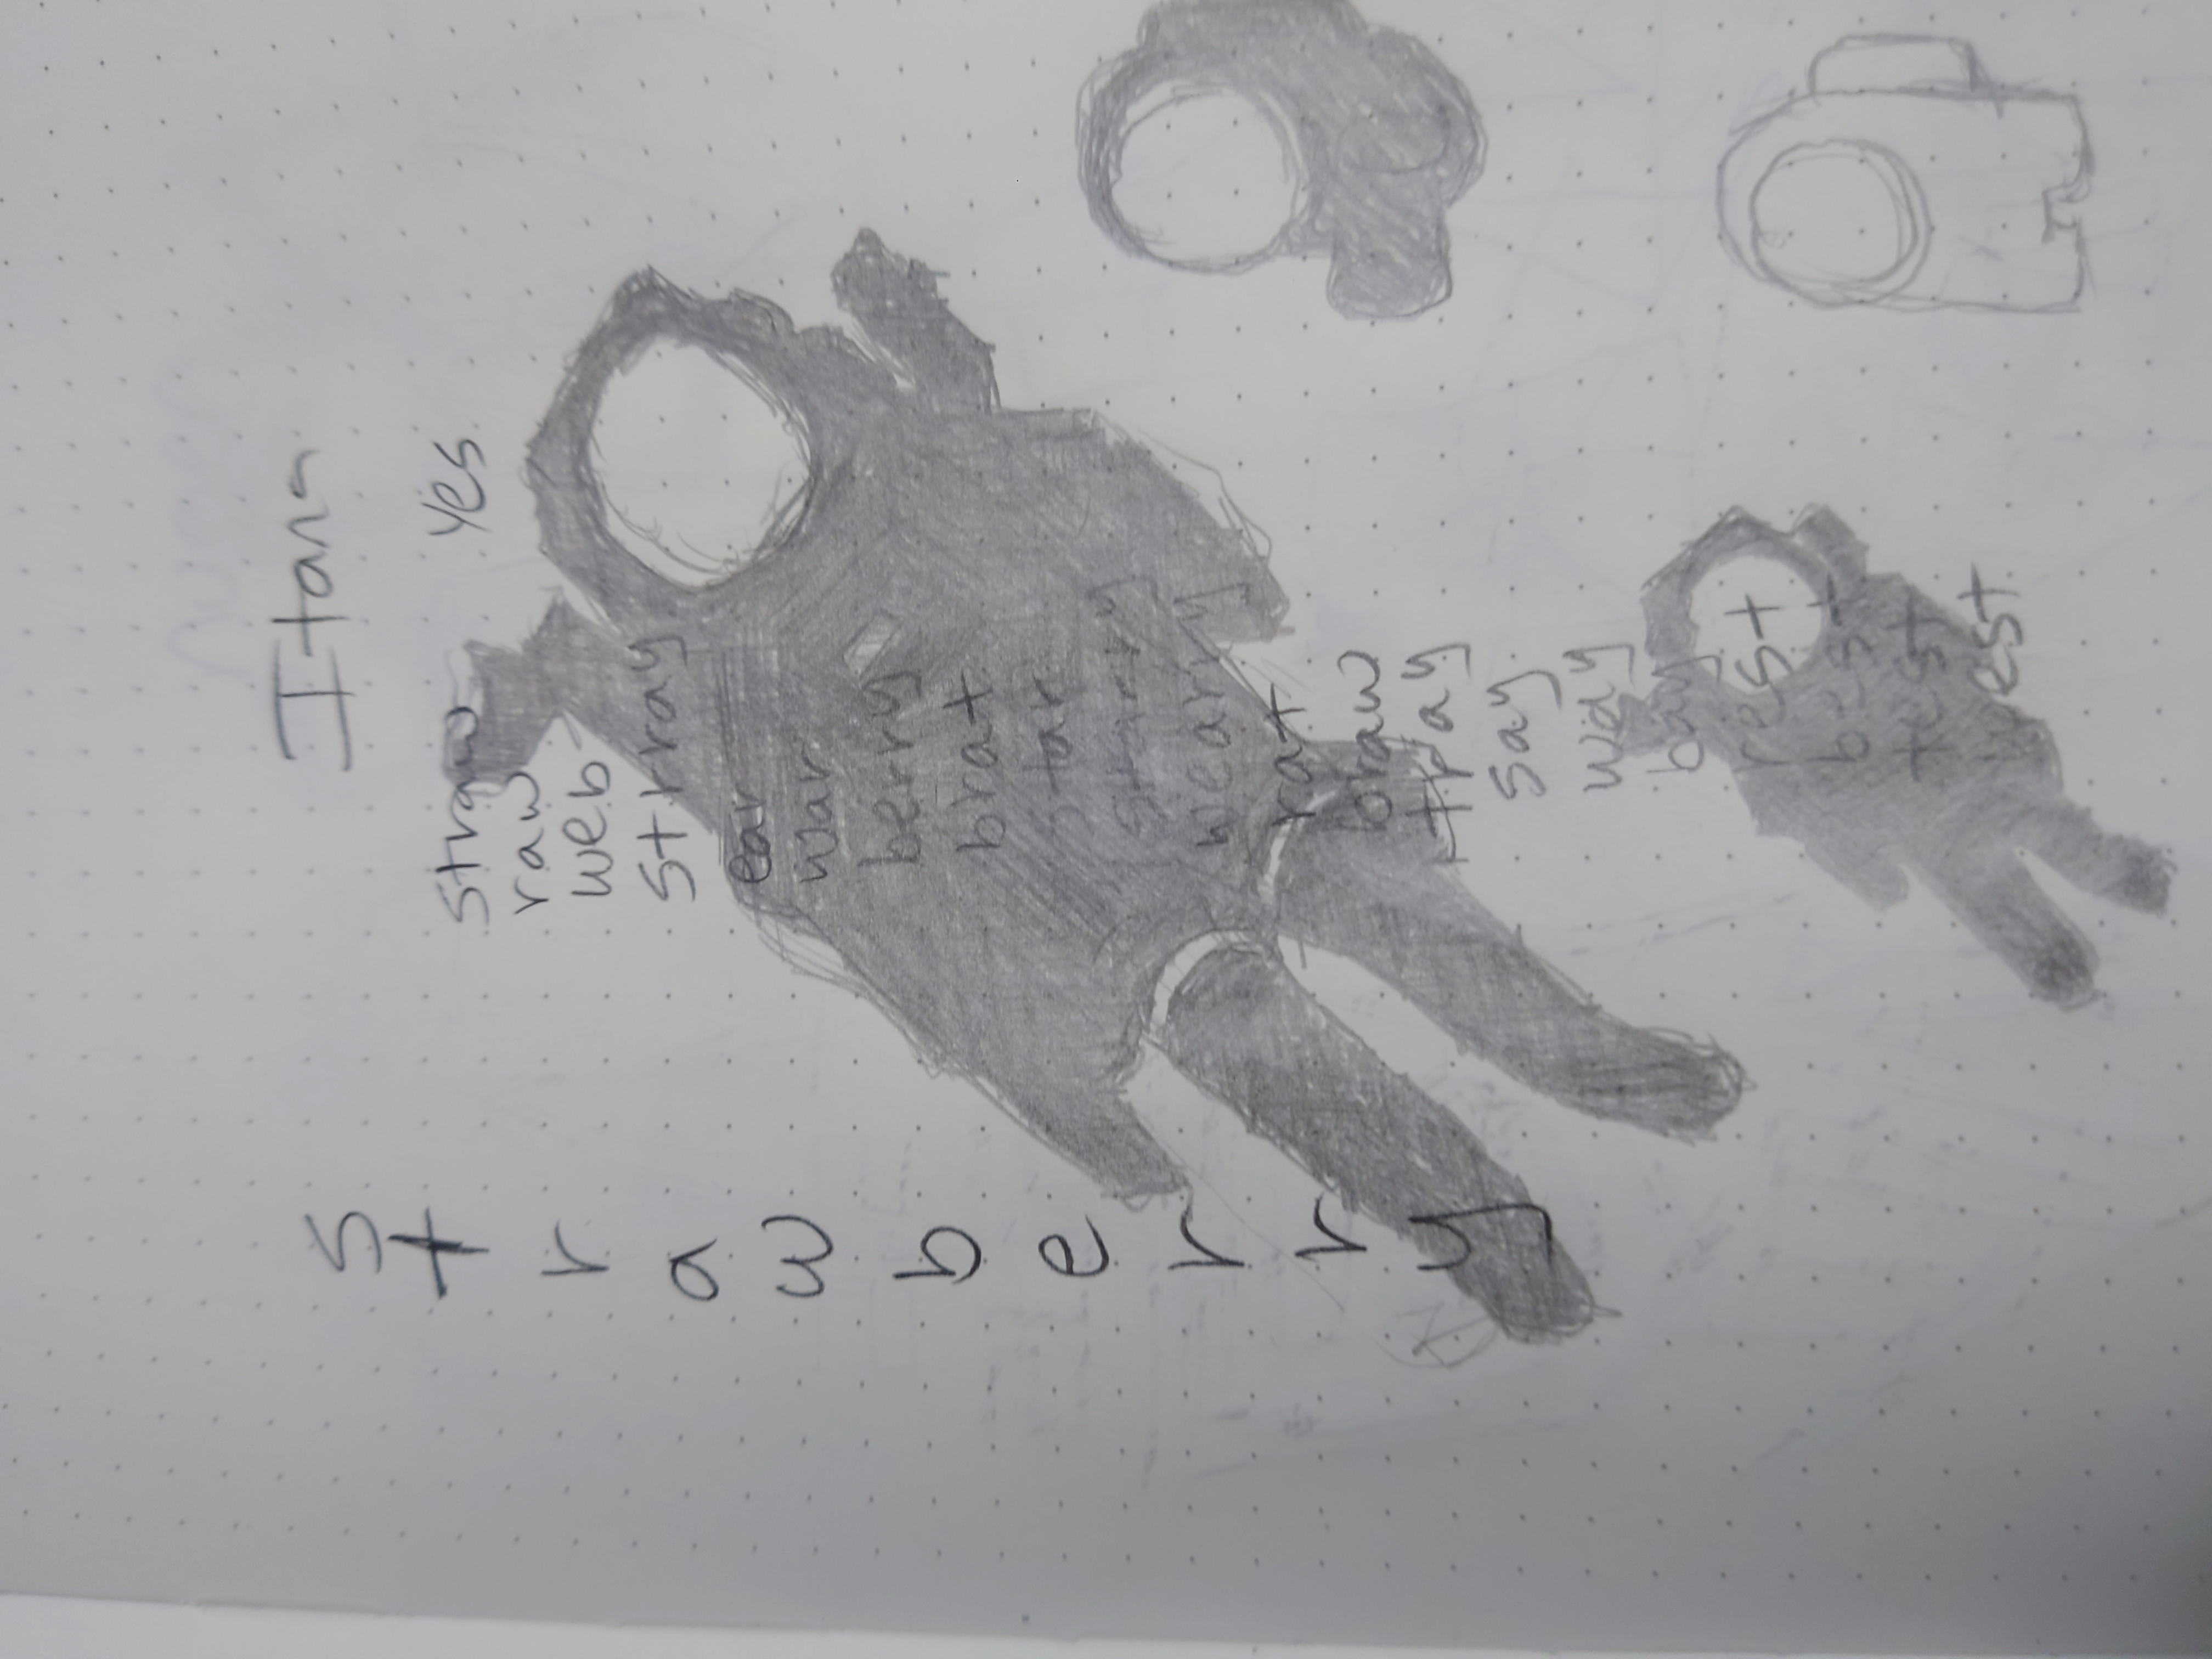 Itana
s
t
r
a
w
b
e
r
r
y
straw yes
raw
web
strray
ear
war
berry
brat
star
starry
wearry
rat
braw
tray
say
way
bay
rest
best
test
west